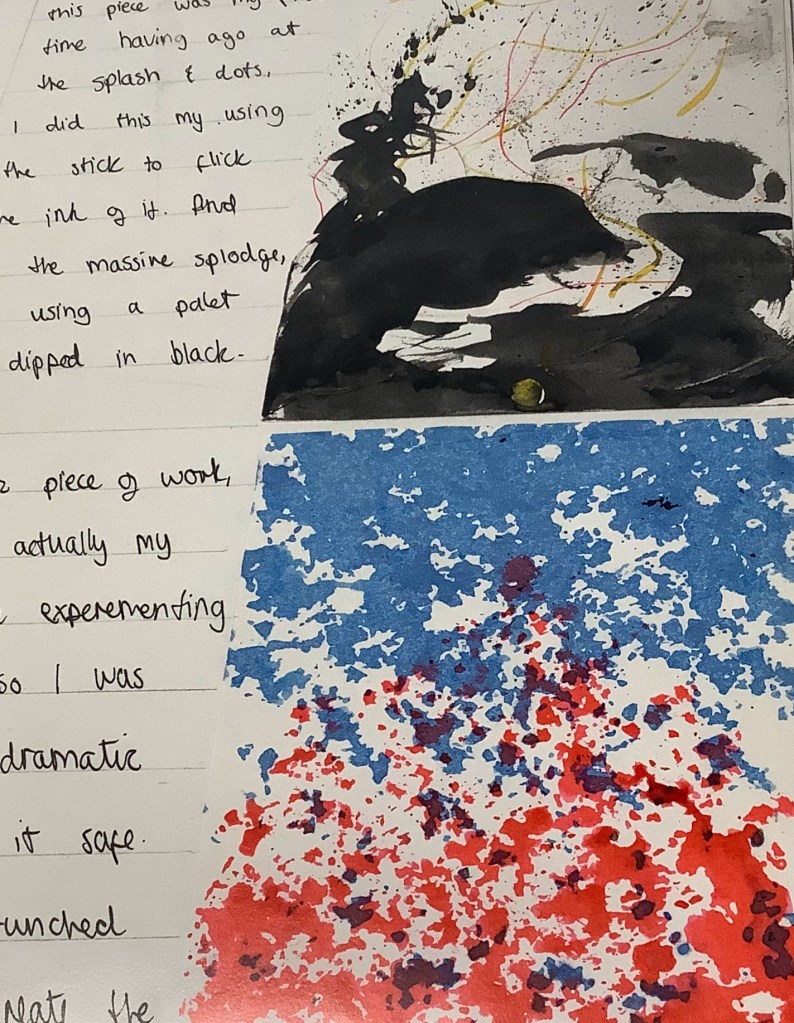 this piece was my
time having ago at
the splash & dots,
I did this my using
the stick to flick
ink of it. And
the massive splodge,
using a palet
dipped in black.
piece of work,
actually my
experementing
so I was
dramatic
it safe.
the